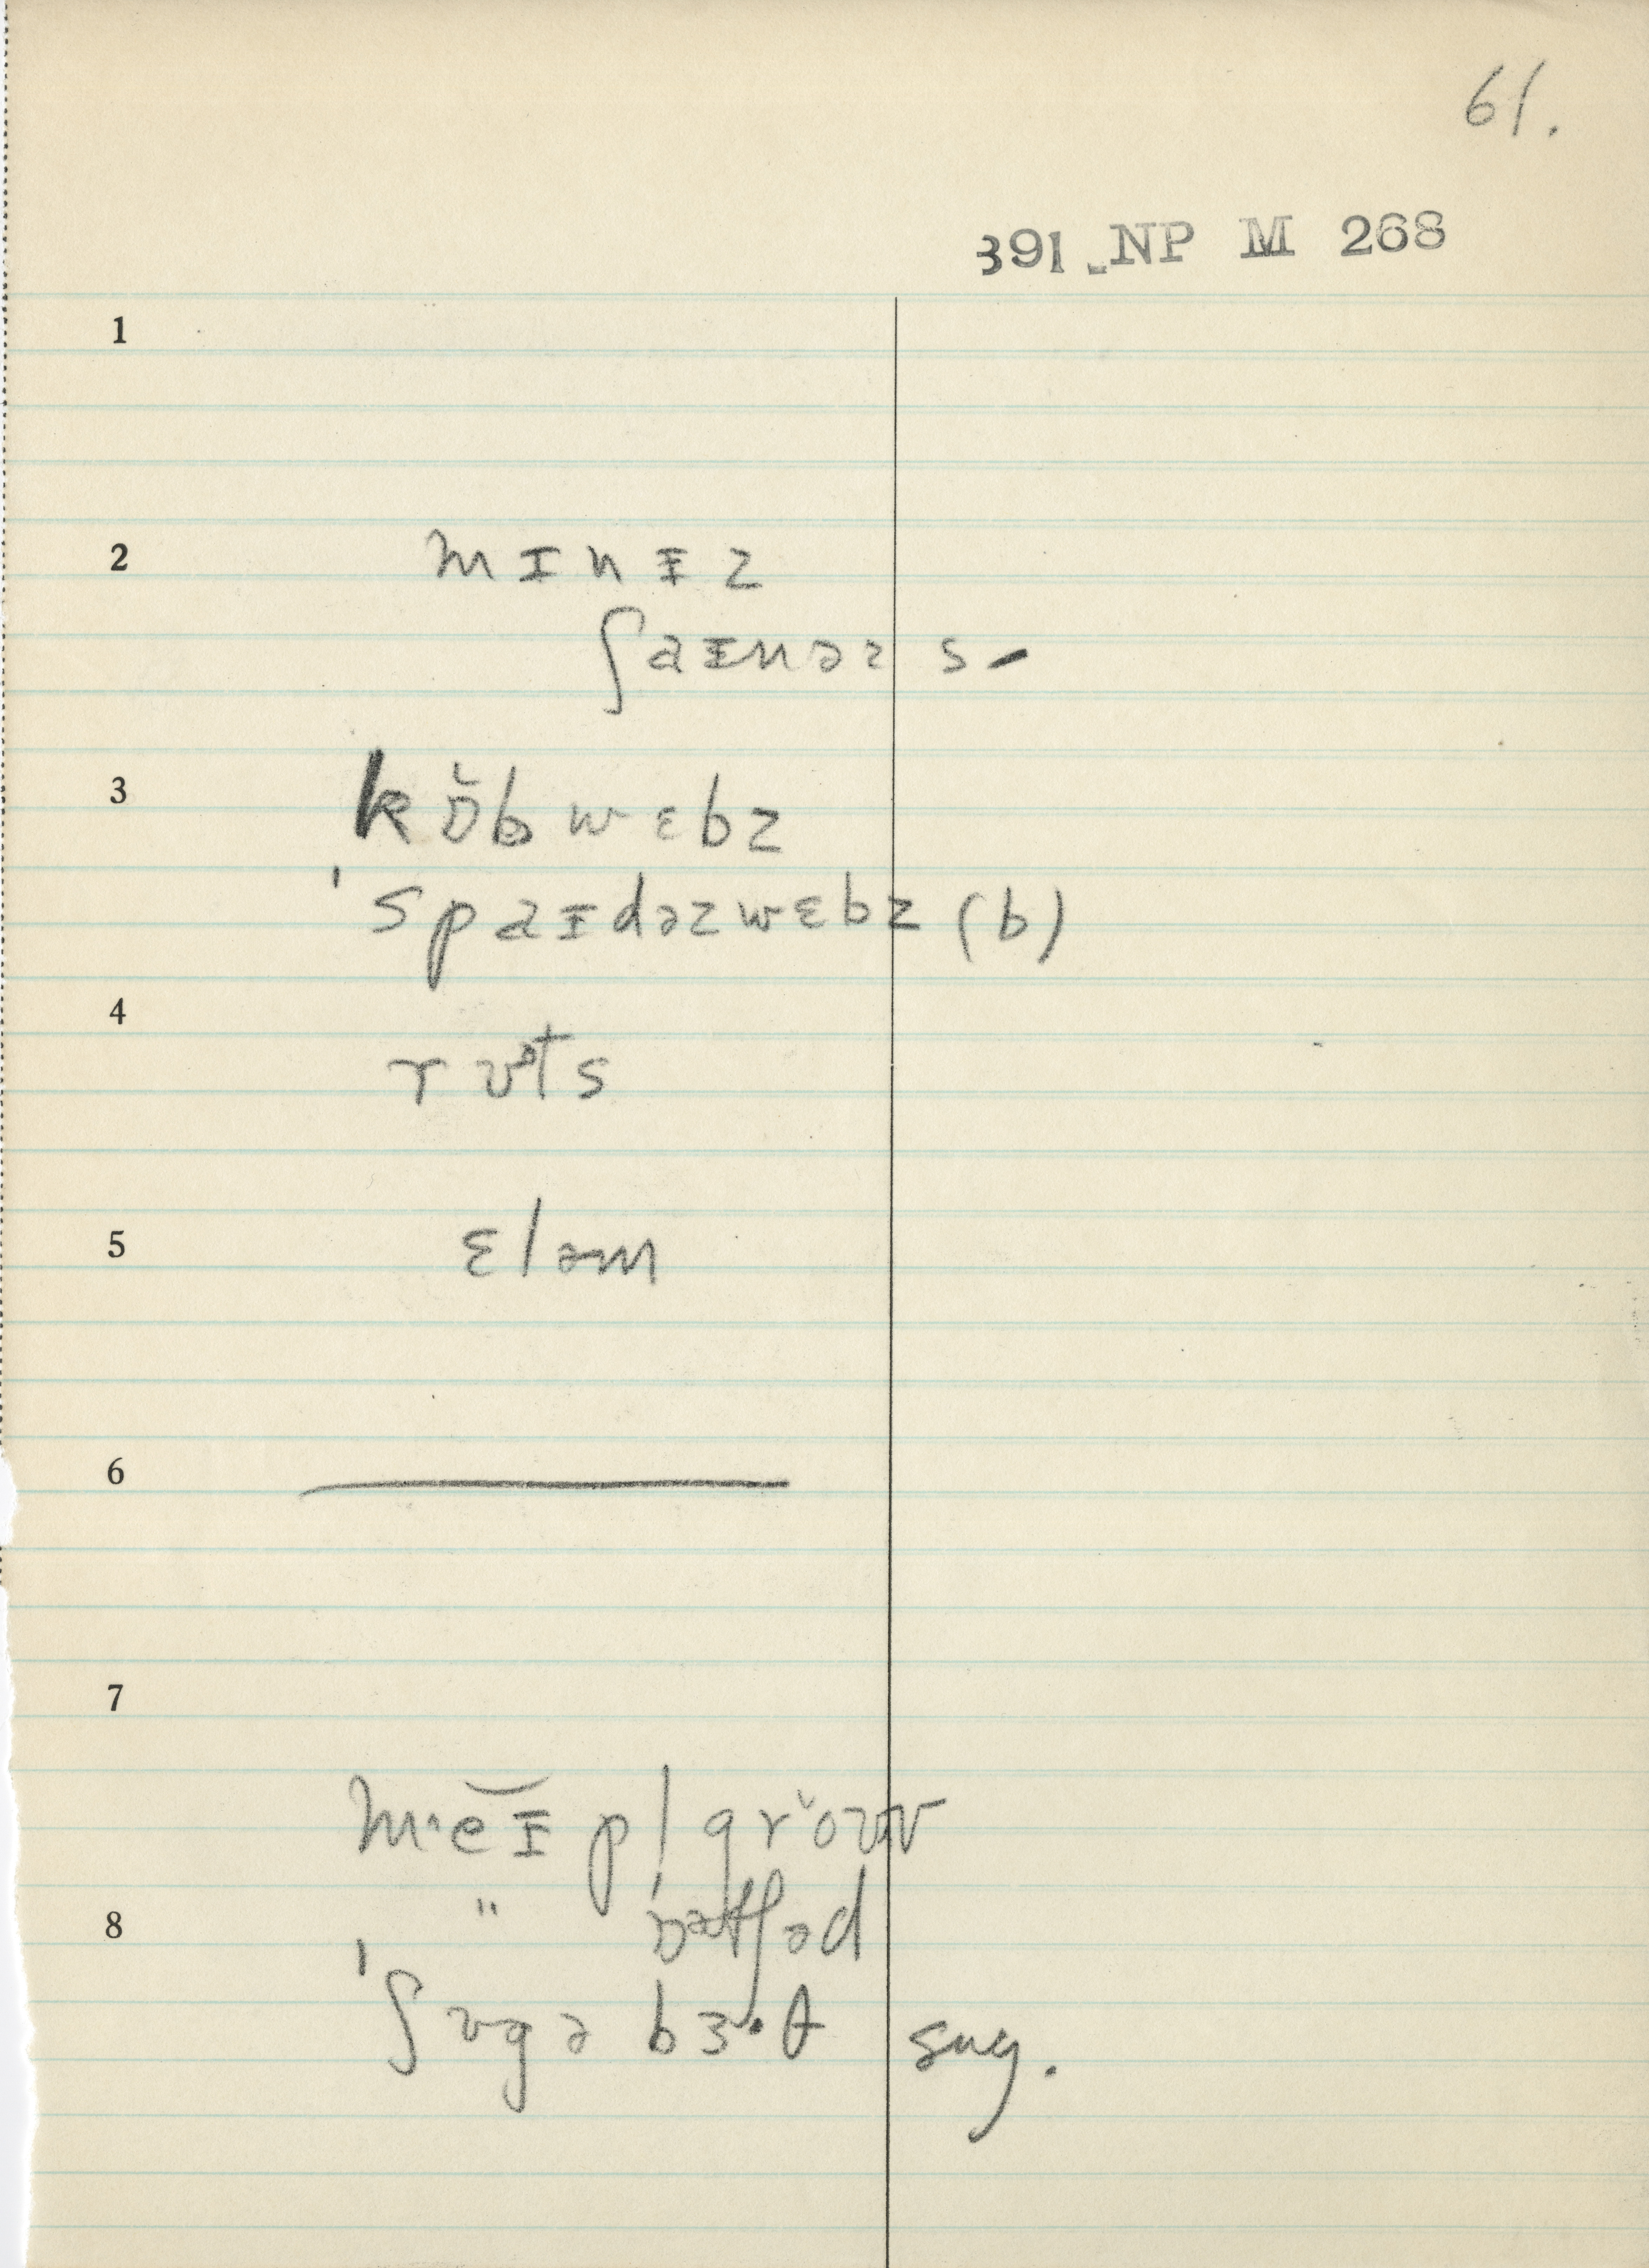 61.
391 NP M 268
1
2
mɪnɪz
ʃaɪnəz s-
3
kɒ̆bwɛbz
'spaɪdəzwɛbz (b)
4
rʊᵊts
5
ɛləm
6
7
m·eɪpl grˇoʊv
" ɒətʃəd
8
'ʃʊgə bɜ·θ sug.